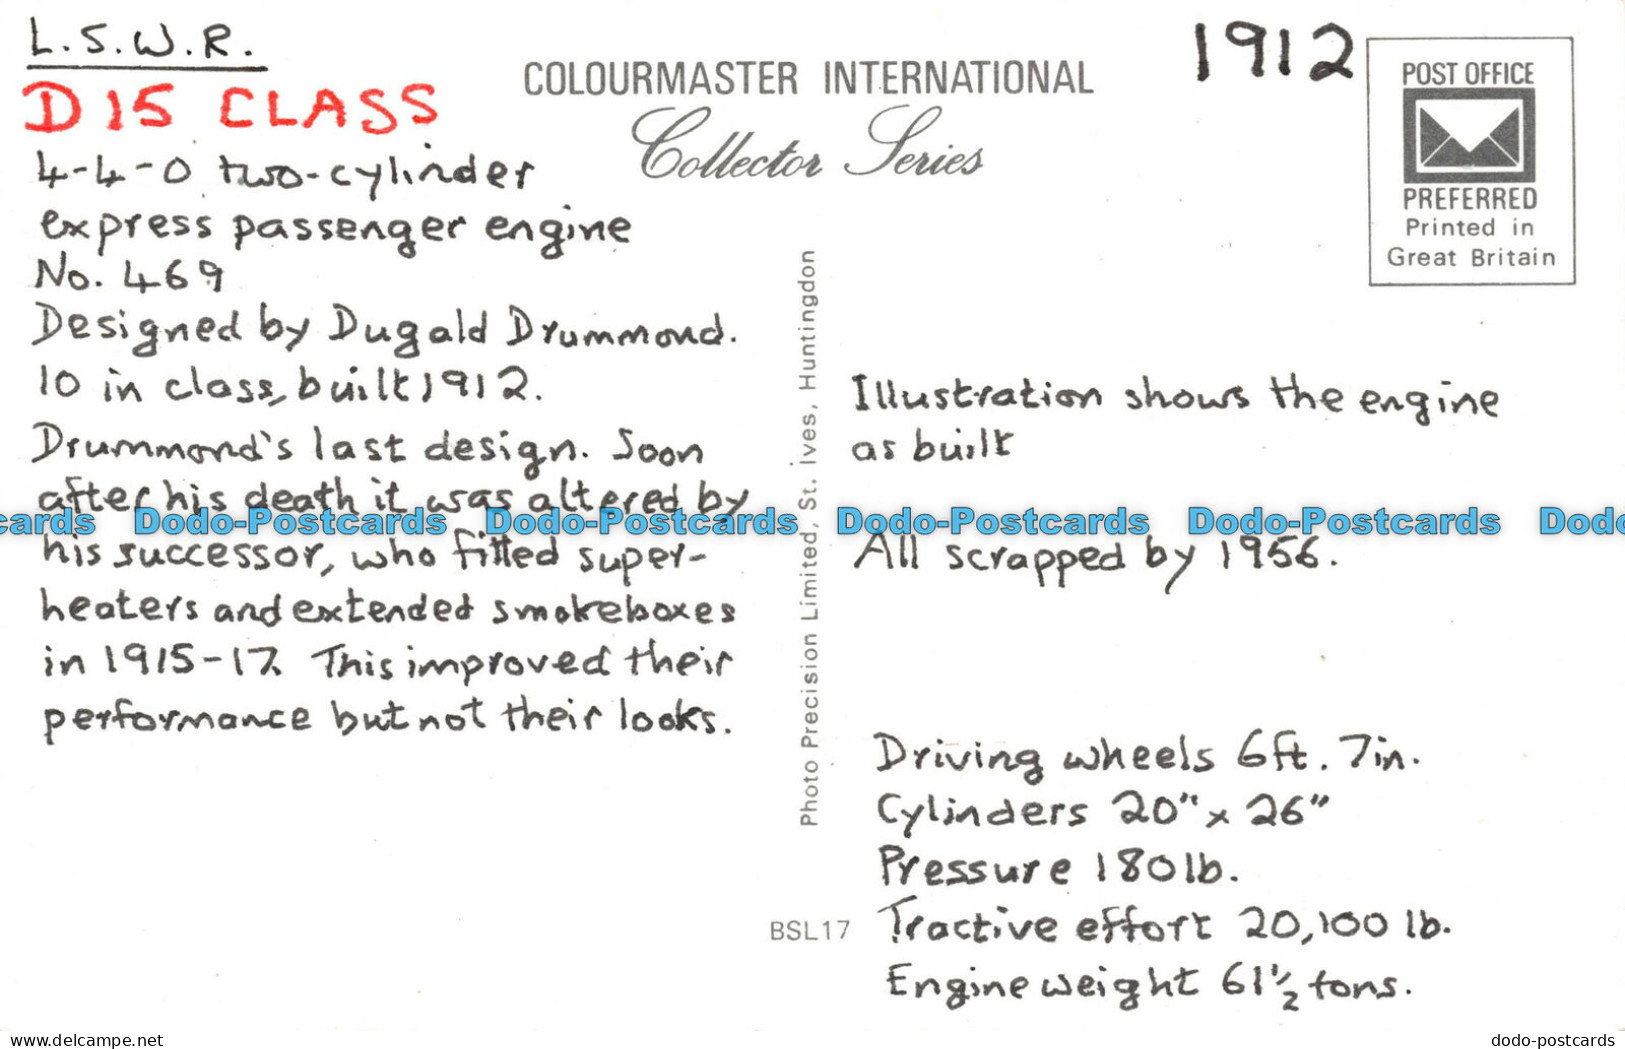 L.S.W.R.
D15 CLASS
4-4-0 two-cylinder
express passenger engine
No. 469
Designed by Dugald Drummond.
10 in class, built 1912.
Drummond's last design. Soon
after his death it was altered by
his successor, who fitted super-
heaters and extended smokeboxes
in 1915-17. This improved their
performance but not their looks.
COLOURMASTER INTERNATIONAL
Collector Series
1912
POST OFFICE
PREFERRED
Printed in
Great Britain
Photo Precision Limited, St. Ives, Huntingdon
Illustration shows the engine
as built
All scrapped by 1956.
Driving wheels 6ft. 7in.
Cylinders 20" x 26"
Pressure 180lb.
Tractive effort 20,100 lb.
Engine weight 61½ tons.
BSL17
cards Dodo-Postcards Dodo-Postcards Dodo-Postcards Dodo-Postcards Dodo
www.delcampe.net
dodo-postcards